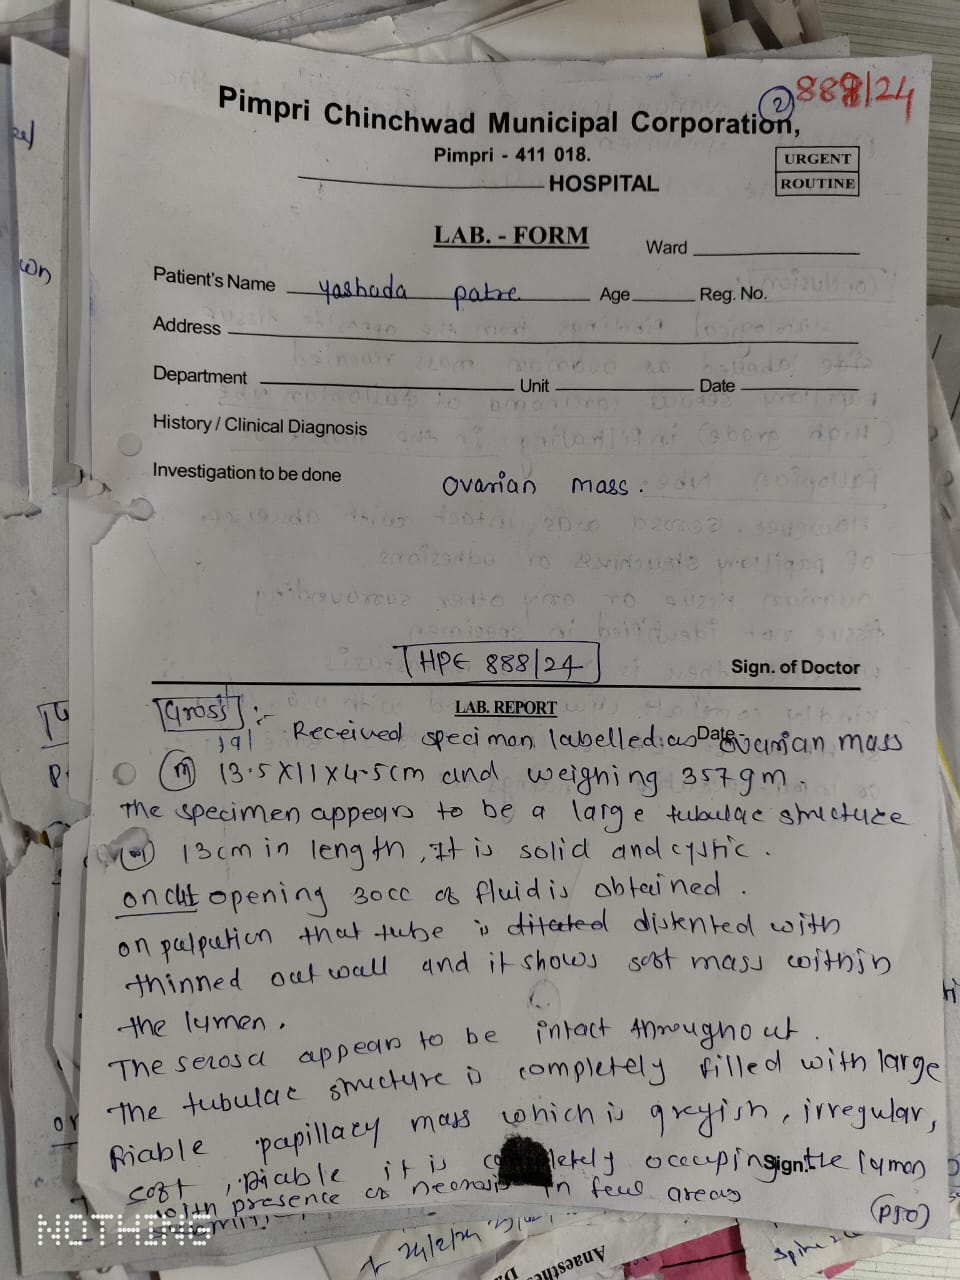 888/24
2
Pimpri Chinchwad Municipal Corporation,
Pimpri - 411 018.
URGENT
HOSPITAL
ROUTINE
LAB. - FORM
Ward
Patient's Name yashoda patre Age Reg. No.
Address
Department Unit Date
History / Clinical Diagnosis
Investigation to be done ovarian mass.
HPE 888/24
Sign. of Doctor
LAB. REPORT
Gross :- Received specimen labelled as Date- ovarian mass
(m) 13.5X11X4.5cm and weighing 357gm.
The specimen appears to be a large tubular structure
(m) 13cm in length, It is solid and cystic.
on cut opening 30cc of fluid is obtained.
on palpation that tube is dilated distented with
thinned out wall and it shows soft mass within
the lumen.
The serosa appears to be intact throughout.
The tubular structure is completely filled with large
friable papillary mass which is greyish, irregular,
soft, friable it is letely occuping the lumen
Sign.
with presence of necrosis in few areas
(PTO)
24/2/24
NOTHING